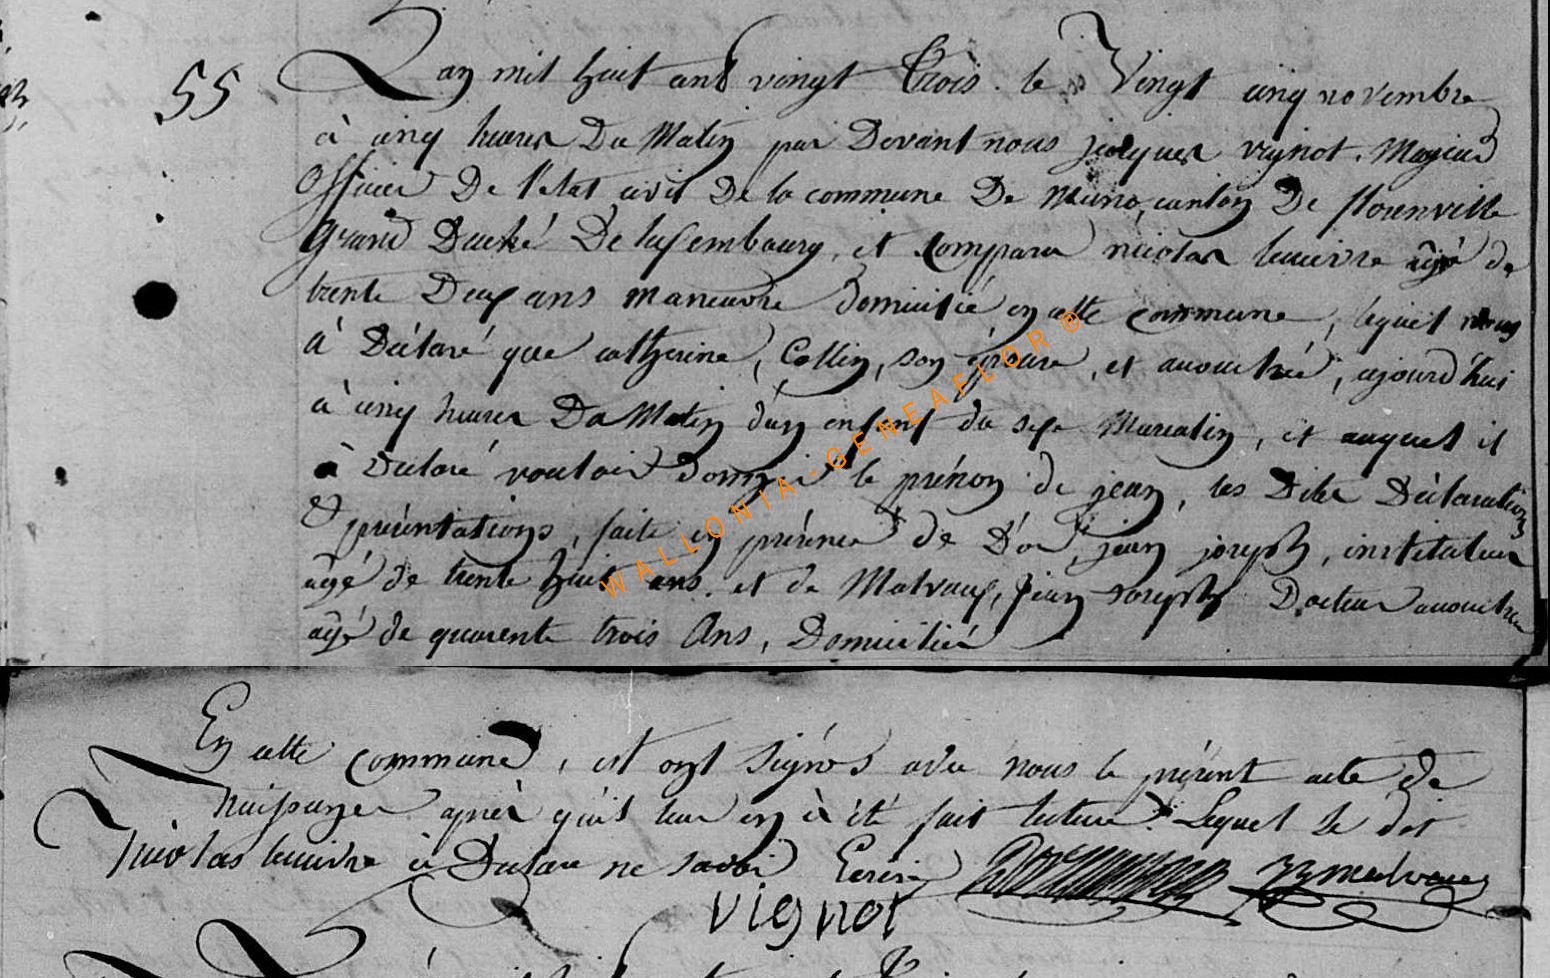 55
L'an mil huit ans vingt trois. le Vingt cinq novembre
à cinq heures Du Matin par Devant nous jacques vignot. Mayeur
Officier De l'Etat civil De la commune De Muno, canton De florenville
grand Duché De luxembourg, et Comparu nicolas lecuivre agé de
trente Deux ans maneuvre domicilié en cette commune, lequel nous
à Déclaré que catherine, Collin, son épouse, et accouchée, ajourd'hui
à cinq heures Du Matin d'un enfant du sexe Masculin, et auquel il
à Déclaré vouloir donner le prénom de jean, les Dites Déclaration
& présentations, faite en présence de jean joseph, instituteur
agé de trente huit ans. et de Malvaux, jean joseph Docteur accoucheur
agé de quarente trois Ans, Domicilié
En cette commune, est ont signés avec nous le présent acte de
naissance après qu'il leur en à été fait lecture. Lequel Le dit
Nicolas lecuivre à Déclare ne savoir Ecrire
jj malvaux
vignot
WALLONIA-GENEAFLOR®